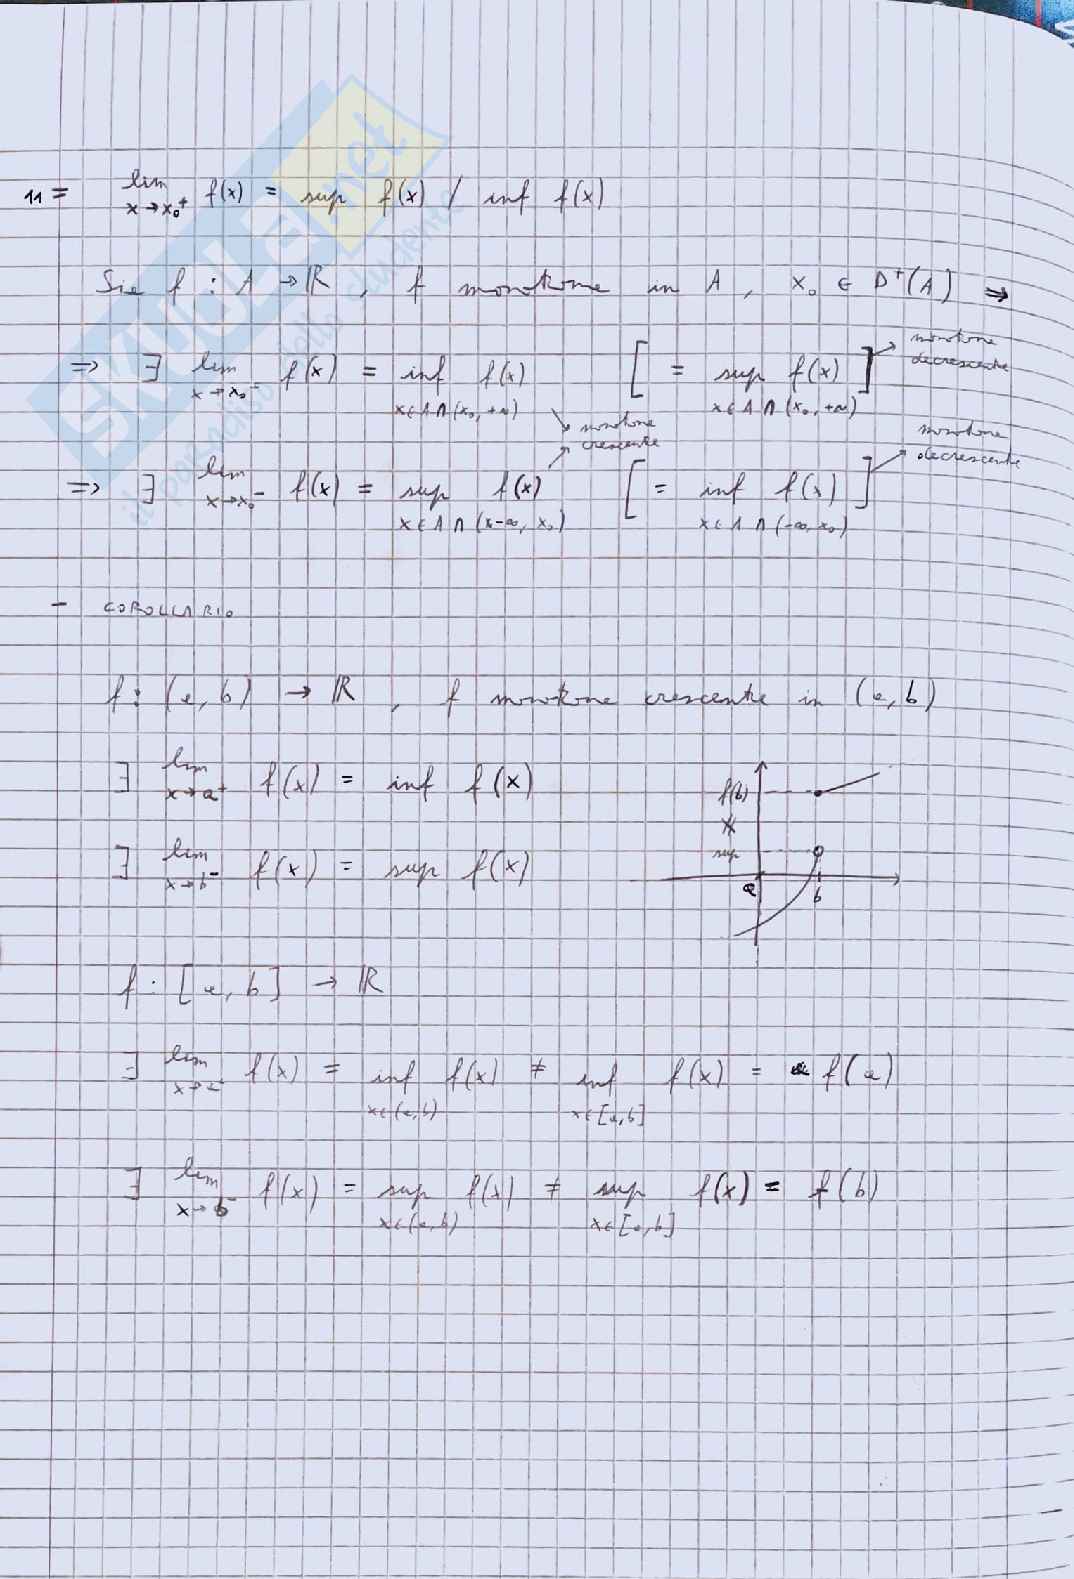 11= lim x→x₀⁺ f(x) = sup f(x) / inf f(x)
Sia f : A → ℝ , f monotona in A , x₀ ∈ D⁺(A) ⇒
⇒ ∃ lim x→x₀⁻ f(x) = inf x∈A∩(x₀,+∞) f(x) [ = sup x∈A∩(x₀,+∞) f(x) ] → monotona decrescente
monotona crescente
⇒ ∃ lim x→x₀⁻ f(x) = sup x∈A∩(x-∞, x₀) f(x) [ = inf x∈A∩(-∞,x₀) f(x) ] → monotona decrescente
- COROLLARIO
f: (a,b) → ℝ , f monotona crescente in (a,b)
∃ lim x→a⁺ f(x) = inf f(x)
∃ lim x→b⁻ f(x) = sup f(x)
f(b)
sup
a b
f: [a,b] → ℝ
∃ lim f(x) = inf x∈(a,b) f(x) ≠ inf x∈[a,b] f(x) = f(a)
∃ lim x→b⁻ f(x) = sup x∈(a,b) f(x) ≠ sup x∈[a,b] f(x) = f(b)
SKUOLA.net
il paradiso dello studente